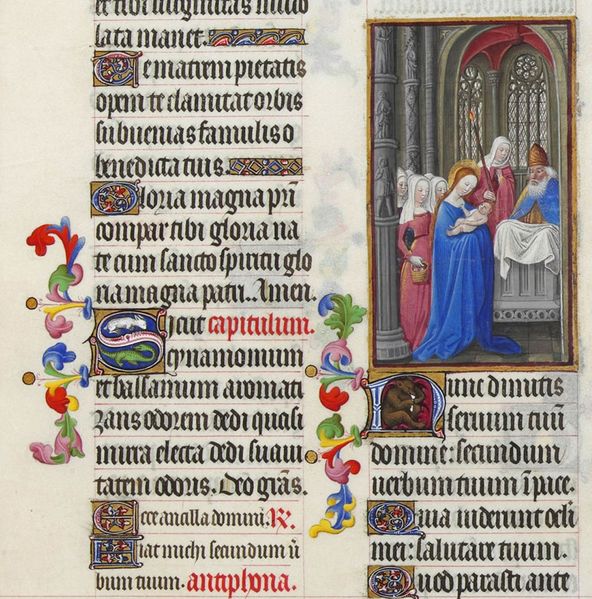 et tibi uirginitas inuio
lata manet.
Te matrem pietatis
opem te clamitat orbis
subuenias famulis o
benedicta tuis.
Gloria magna pr̄i
compar tibi gloria na
te cum sancto spiritu glo
ria magna patri. Amen.
Sicut capitulum.
cynamomum
et balsamum aromati
zans odorem dedi quasi
mirra electa dedi suaui
tatem odoris. Deo gr̄as.
Ecce ancilla domini. R.
Fiat michi secundum u̅
bum tuum. antiphona.
Nunc dimitis
seruum tuū
domine: secundum
uerbum tuum ī pace.
Quia uiderunt ocl̄i
mei: salutare tuum.
Quod parasti ante